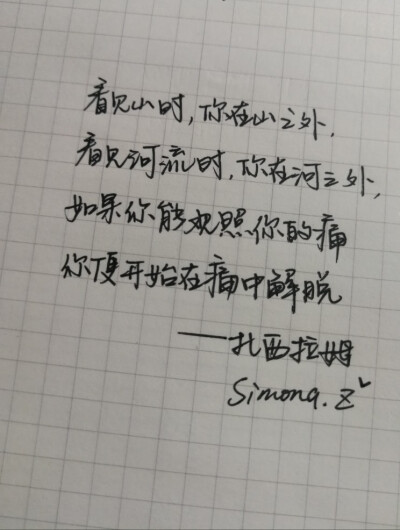 看见山时,你在山之外,
看见河流时,你在河之外,
如果你能观照你的痛
你便开始在痛中解脱
——扎西拉姆
Simona.Z